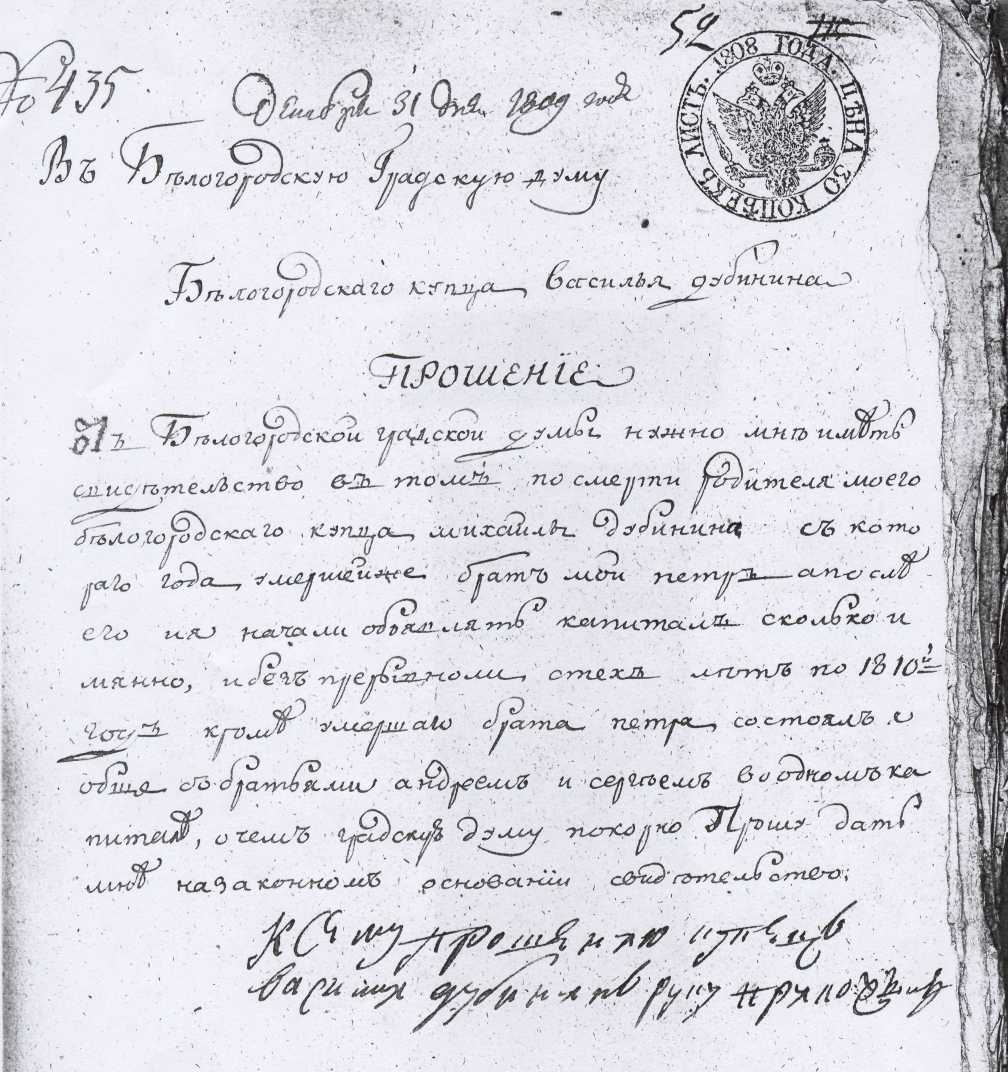 52
1808 ГОДА. ЦѢНА 30 КОПѢЕКЪ ЛИСТЪ.
№ 435
Декабря 31 дня 1809 года
Въ Бѣлогородскую Градскую думу
Бѣлогородскаго купца Василья дубинина
ПРОШЕНІЕ
Бѣлогородской градской думы нужно мнѣ имѣть
свидѣтельство въ томъ по смерти родителя моего
бѣлогородскаго купца михайлы дубинина съ кото
раго года умершейже братъ мой петръ а послѣ
его ия начали объявлять капиталъ сколько и
мянно, ибезъ прерывноли стехъ лѣтъ по 1810й
годъ кромѣ умершаго брата петра состоялъ я
обще събратьями андреемъ и сергѣемъ во одномъ ка
питалѣ, о чемъ градскую думу покорно Прошу дать
мнѣ назаконномъ основании свидѣтельство.
К сему прошению купецъ
василиа дубининъ руку приложилъ